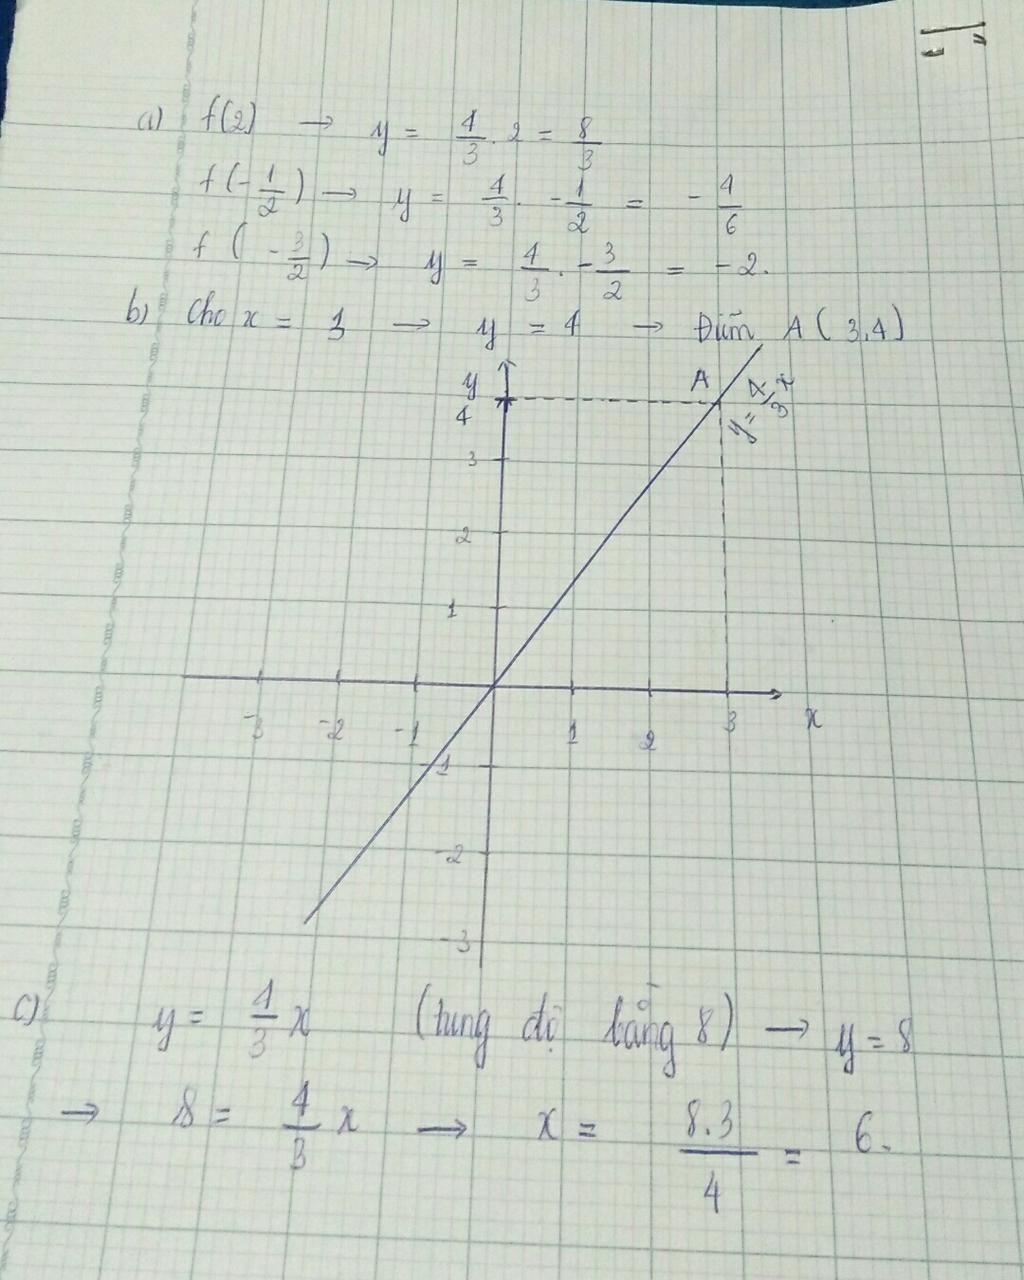 a) f(2) → y = 4/3 . 2 = 8/3
f(-1/2) → y = 4/3 . -1/2 = -4/6
f(-3/2) → y = 4/3 . -3/2 = -2.
b) Cho x = 3 → y = 4 → Điểm A(3,4)
y
A
4
y = 4/3 x
3
2
1
-3 -2 -1 1 2 3 x
-1
-2
-3
c) y = 4/3 x (tung độ bằng 8) → y = 8
→ 8 = 4/3 x → x = 8.3/4 = 6.